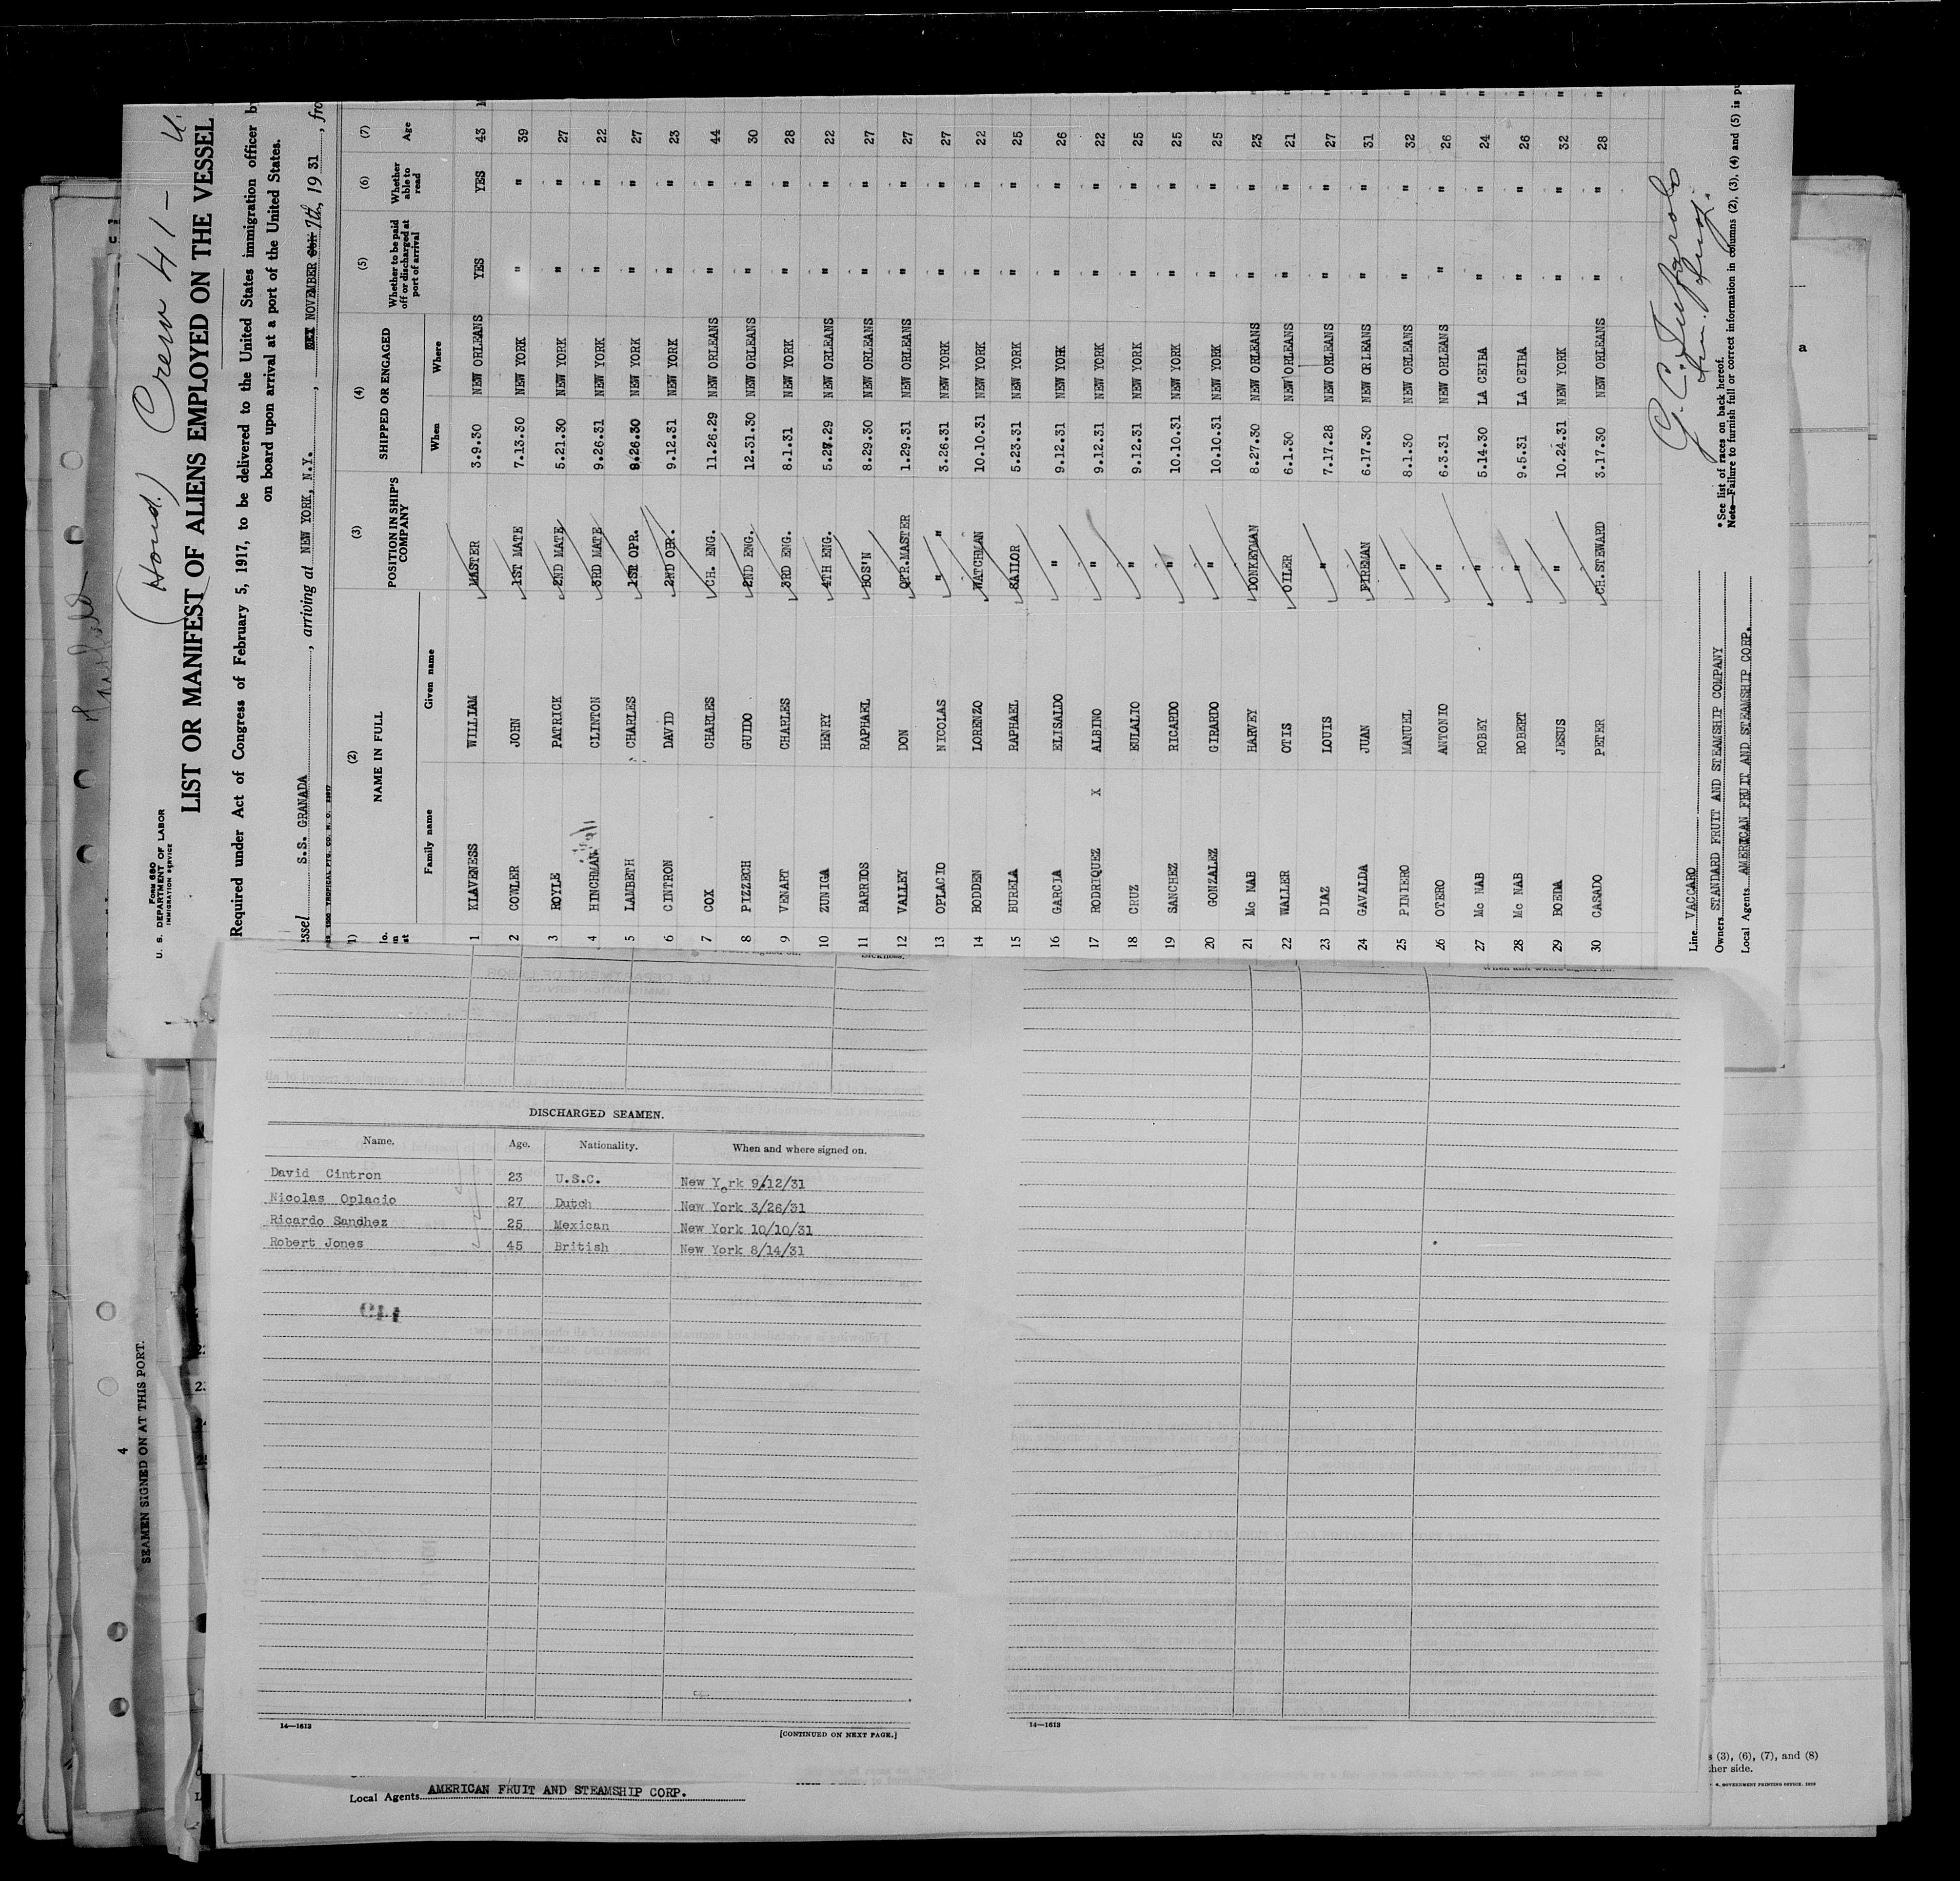 (Hond.) Crew 41 - U.
Form 680
U. S. DEPARTMENT OF LABOR
IMMIGRATION SERVICE
LIST OR MANIFEST OF ALIENS EMPLOYED ON THE VESSEL
Required under Act of Congress of February 5, 1917, to be delivered to the United States immigration officer b
on board upon arrival at a port of the United States.
ssel S.S. GRANADA, arriving at NEW YORK, N.Y., NOVEMBER 7th, 1931, fro
(2) (3) (4) (5) (6) (7)
NAME IN FULL POSITION IN SHIP'S COMPANY SHIPPED OR ENGAGED Whether to be paid off or discharged at port of arrival Whether able to read Age
Family name Given name When Where
1 KLAVENESS WILLIAM MASTER 3.9.30 NEW ORLEANS YES YES 43
2 COWLER JOHN 1ST MATE 7.13.30 NEW YORK " " 39
3 ROYLE PATRICK 2ND MATE 5.21.30 NEW YORK " " 27
4 HINCHMAN CLINTON 3RD MATE 9.26.31 NEW YORK " " 22
5 LAMBETH CHARLES 1ST OPR. 8.26.30 NEW YORK " " 27
6 CINTRON DAVID 2ND OPR. 9.12.31 NEW YORK " " 23
7 COX CHARLES CH. ENG. 11.26.29 NEW ORLEANS " " 44
8 PIZZECH GUIDO 2ND ENG. 12.31.30 NEW ORLEANS " " 30
9 VENART CHARLES 3RD ENG. 8.1.31 NEW YORK " " 28
10 ZUNIGA HENRY 4TH ENG. 5.27.29 NEW ORLEANS " " 22
11 BARRIOS RAPHAEL BOS'N 8.29.30 NEW ORLEANS " " 27
12 VALLEY DON QTR.MASTER 1.29.31 NEW ORLEANS " " 27
13 OPLACIO NICOLAS " " 3.26.31 NEW YORK " " 27
14 BODDEN LORENZO WATCHMAN 10.10.31 NEW YORK " " 22
15 BURELA RAPHAEL SAILOR 5.23.31 NEW YORK " " 25
16 GARCIA ELISALDO " 9.12.31 NEW YORK " " 26
17 RODRIQUEZ X ALBINO " 9.12.31 NEW YORK " " 22
18 CRUZ EULALIO " 9.12.31 NEW YORK " " 25
19 SANCHEZ RICARDO " 10.10.31 NEW YORK " " 25
20 GONZALEZ GIRARDO " 10.10.31 NEW YORK " " 25
21 Mc NAB HARVEY DONKEYMAN 8.27.30 NEW ORLEANS " " 23
22 WALLER OTIS OILER 6.1.30 NEW ORLEANS " " 21
23 DIAZ LOUIS " 7.17.28 NEW ORLEANS " " 27
24 GAVALDA JUAN FIREMAN 6.17.30 NEW ORLEANS " " 31
25 PINIERO MANUEL " 8.1.30 NEW ORLEANS " " 32
26 OTERO ANTONIO " 6.3.31 NEW ORLEANS " " 26
27 Mc NAB ROBEY " 5.14.30 LA CEIBA " " 24
28 Mc NAB ROBERT " 9.5.31 LA CEIBA " " 26
29 BOEDA JESUS " 10.24.31 NEW YORK " " 32
30 CASADO PETER CH.STEWARD 3.17.30 NEW ORLEANS " " 28
Line VACCARO
Owners STANDARD FRUIT AND STEAMSHIP COMPANY
Local Agents AMERICAN FRUIT AND STEAMSHIP CORP.
* See list of races on back hereof.
Note—Failure to furnish full or correct information in columns (2), (3), (4) and (5) is pu
When and where signed on.
DISCHARGED SEAMEN.
Name. Age. Nationality. When and where signed on.
David Cintron 23 U.S.C. New York 9/12/31
Nicolas Oplacio 27 Dutch New York 3/26/31
Ricardo Sandhez 25 Mexican New York 10/10/31
Robert Jones 45 British New York 8/14/31
14—1613 [CONTINUED ON NEXT PAGE.]
14—1613
Local Agents AMERICAN FRUIT AND STEAMSHIP CORP.
4
SEAMEN SIGNED ON AT THIS PORT.
s (3), (6), (7), and (8)
her side.
GOVERNMENT PRINTING OFFICE